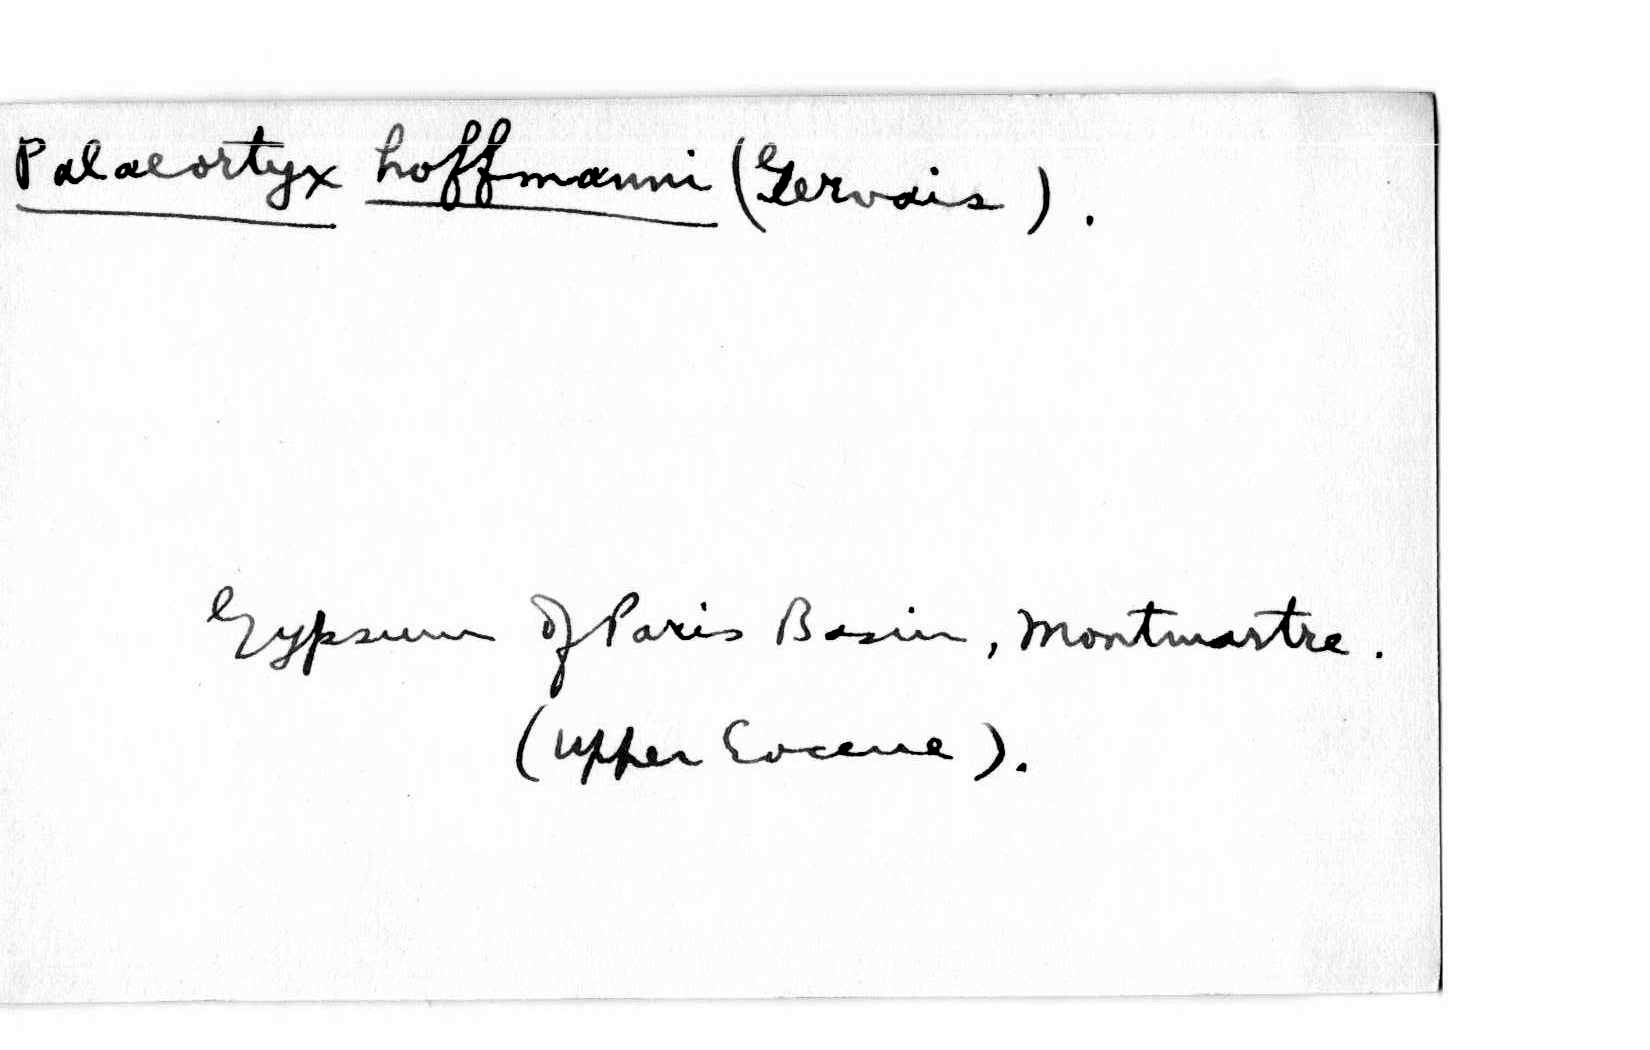 Palaeortyx hoffmanni (Gervais).
Gypsum of Paris Basin, Montmartre.
(Upper Eocene).